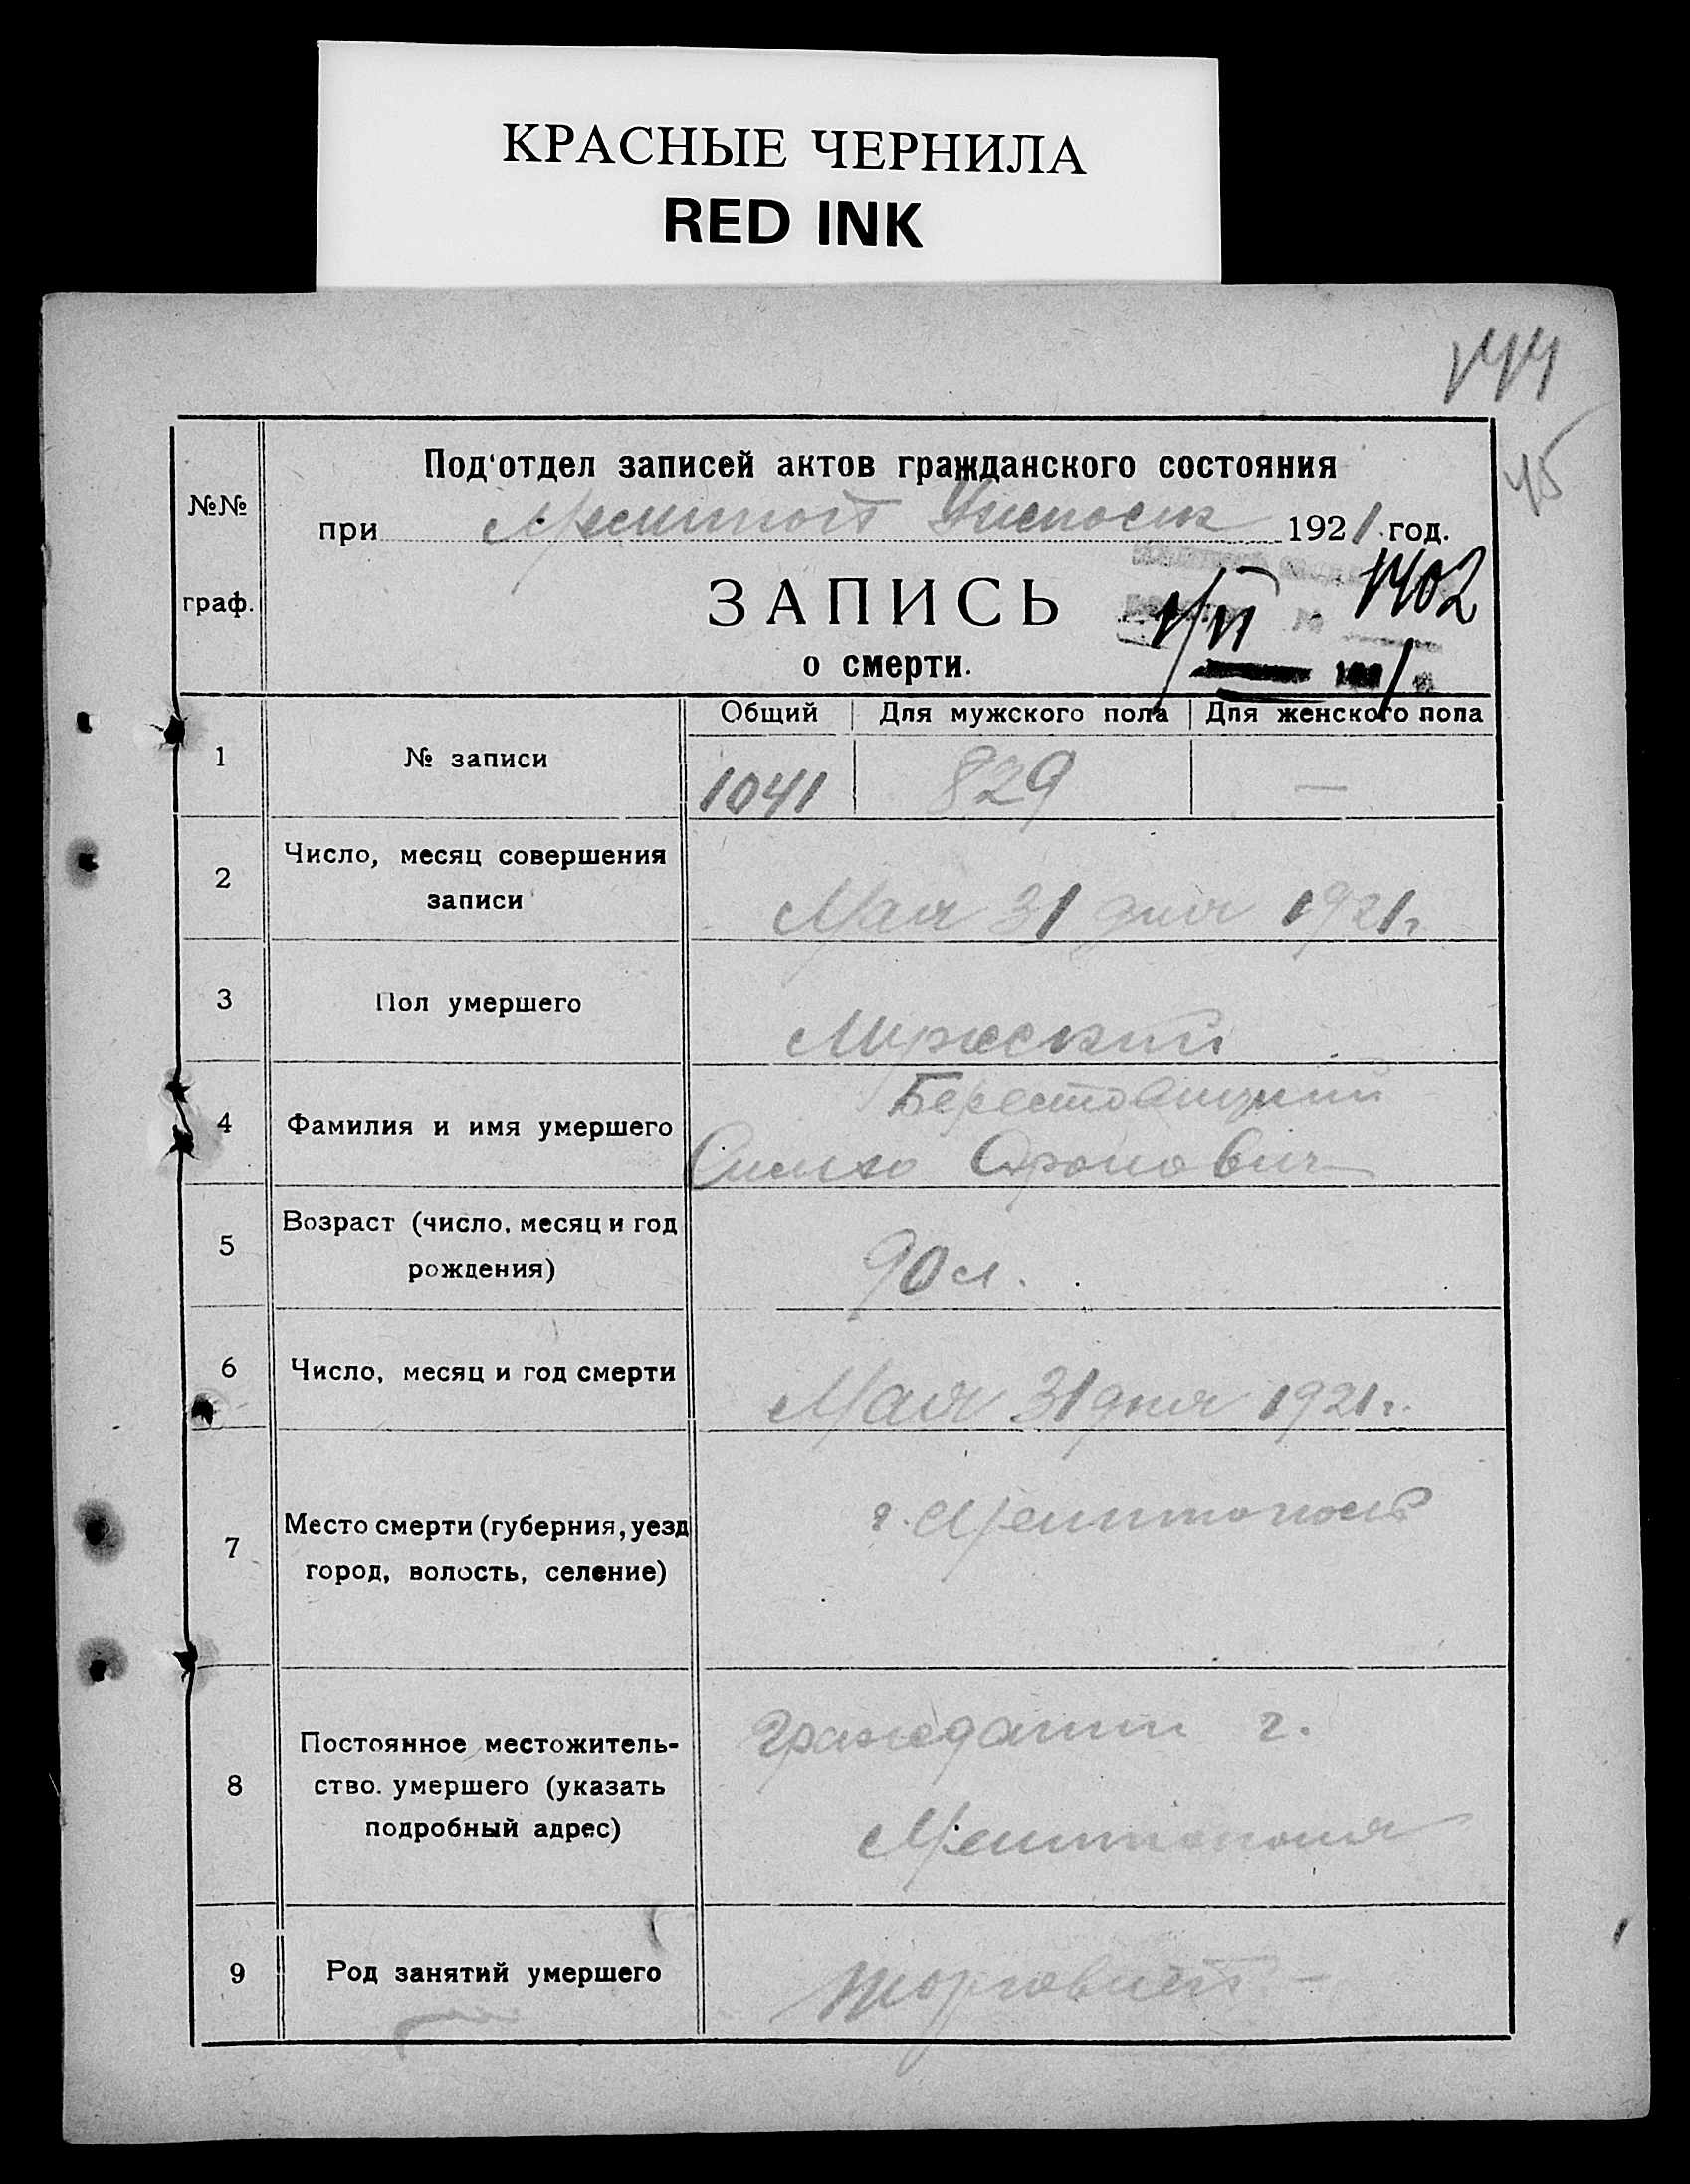 КРАСНЫЕ ЧЕРНИЛА
RED INK
144
45
Под'отдел записей актов гражданского состояния
№№
при 1921 год.
граф.
ЗАПИСЬ
1/VI 1402
о смерти.
1921
Общий Для мужского пола Для женского пола
1 № записи 1041 829 —
2 Число, месяц совершения
записи Мая 31 дня 1921 г.
3 Пол умершего Мужской
Берестовицкий
4 Фамилия и имя умершего
Симхо Аронович
5 Возраст (число, месяц и год
рождения) 90 л.
6 Число, месяц и год смерти Мая 31 дня 1921 г.
г. Мелитополь
7 Место смерти (губерния, уезд
город, волость, селение)
Гражданин г.
8 Постоянное местожитель-
ство. умершего (указать
подробный адрес) Мелитополя
9 Род занятий умершего торговлей —